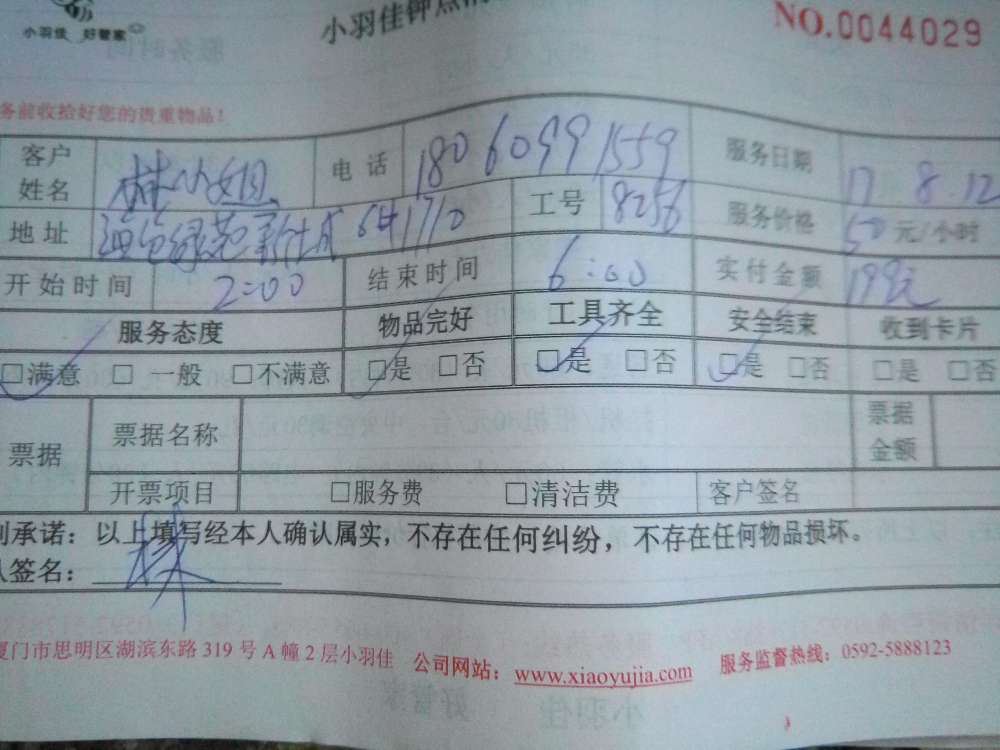 小羽佳 好管家
小羽佳钟点
NO.0044029
务前收拾好您的贵重物品!
客户姓名 林小姐 电话 18060991559 服务日期 17 8.12
地址 绿苑新城 641710 工号 8256 服务价格 50元/小时
开始时间 2:00 结束时间 6:00 实付金额 199元
服务态度 物品完好 工具齐全 安全结束 收到卡片
□满意 □一般 □不满意 □是 □否 □是 □否 □是 □否 □是 □否
票据 票据名称 票据金额
开票项目 □服务费 □清洁费 客户签名
别承诺:以上填写经本人确认属实,不存在任何纠纷,不存在任何物品损坏。
人签名: 林
厦门市思明区湖滨东路319号A幢2层小羽佳 公司网站:www.xiaoyujia.com 服务监督热线:0592-5888123